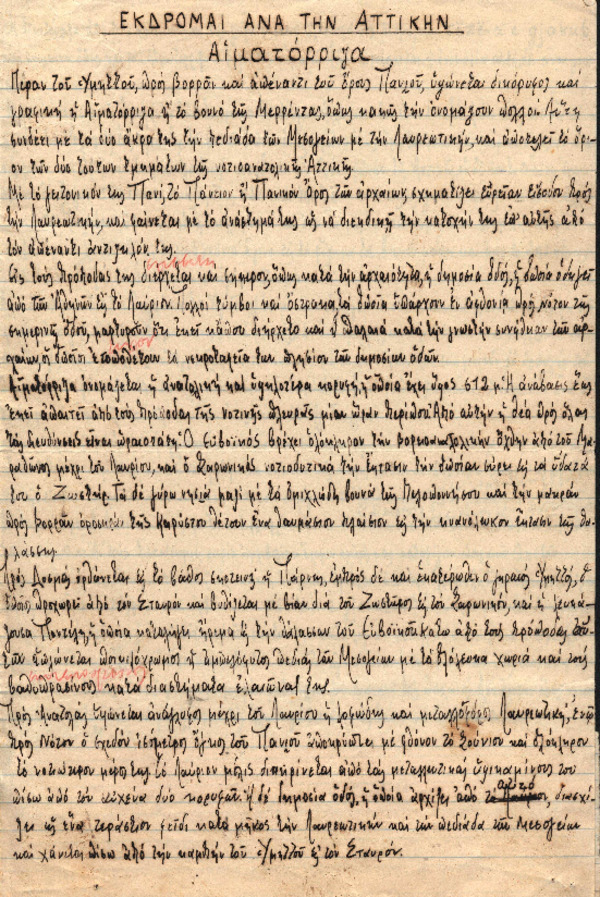 ΕΚΔΡΟΜΑΙ ΑΝΑ ΤΗΝ ΑΤΤΙΚΗΝ
Αἱματόρριζα
Πέραν τοῦ Ὑμηττοῦ, πρὸς βορρᾶν καὶ ἀπέναντι τοῦ ὄρους Πανίου, ὑψώνεται δικόρυφος καὶ
γραφικὴ ἡ Αἱματόρριζα ἢ τὸ βουνὸ τῆς Μερρέντας, ὅπως κακῶς τὴν ὀνομάζουν πολλοί. Αὕτη
συνδέει μὲ τὰ δύο ἄκρα της τὴν πεδιάδα τῶν Μεσογείων μὲ τὴν Λαυρεωτικήν, καὶ ἀποτελεῖ τὸ ὅρι-
ον τῶν δύο τούτων τμημάτων τῆς νοτιοανατολικῆς Ἀττικῆς.
Μὲ τὸ γειτονικόν της Πανί, τὸ Πάνειον ἢ Πανικὸν ὄρος τῶν ἀρχαίων, σχηματίζει εὐρεῖαν εἴσοδον πρὸς
τὴν Λαυρεωτικήν, καὶ φαίνεται μὲ τὸ ἀνάστημά της ὡς νὰ διεκδικῇ τὴν κατοχήν της ἐπ' αὐτῆς ἀπὸ
τὸν ἀπέναντι ἀντίζηλόν της.
Εἰς τοὺς πρόποδάς της διέρχεται καὶ σήμερον, ὅπως κατὰ τὴν ἀρχαιότητα, ἡ δημοσία ὁδός, ἡ ὁποία ὁδηγεῖ
ἀπὸ τῶν Ἀθηνῶν εἰς τὸ Λαύριον. Πολλοὶ τύμβοι καὶ ὄστρακα τὰ ὁποῖα ὑπάρχουν ἐν ἀφθονίᾳ πρὸς νότον τῆς
σημερινῆς ὁδοῦ, μαρτυροῦν ὅτι ἐκεῖ κάπου διήρχετο καὶ ἡ παλαιὰ κατὰ τὴν γνωστὴν συνήθειαν τῶν ἀρ-
χαίων, οἱ ὁποῖοι ἐτοποθέτουν τὰ νεκροταφεῖα των πλησίον τῶν δημοσίων ὁδῶν.
Αἱματόρριζα ὀνομάζεται ἡ ἀνατολικὴ καὶ ὑψηλοτέρα κορυφή, ἡ ὁποία ἔχει ὕψος 612 μ. Ἡ ἀνάβασις ἕως
ἐκεῖ ἀπαιτεῖ ἀπὸ τοὺς πρόποδας τῆς νοτινῆς πλευρᾶς μίαν ὥραν περίπου. Ἀπὸ αὐτὴν ἡ θέα πρὸς ὅλας
τὰς διευθύνσεις εἶναι ὡραιοτάτη. Ὁ Εὐβοϊκὸς βρέχει ὁλόκληρον τὴν βορειοανατολικὴν ὄχθην ἀπὸ τοῦ Μα-
ραθῶνος μέχρι τοῦ Λαυρίου, καὶ ὁ Σαρωνικὸς νοτιοδυτικὰ τὴν ἔκτασιν τὴν ὁποίαν σύρει εἰς τὰ ὕδατά
του ὁ Ζωστήρ. Τὰ δὲ γύρω νησιὰ μαζὶ μὲ τὰ ὁμιχλώδη βουνὰ τῆς Πελοποννήσου καὶ τὴν μακρὰν
πρὸς βορρᾶν ὀροσειρὰν τῆς Καρύστου θέτουν ἕνα θαυμάσιον πλαίσιον εἰς τὴν κυανόλευκον ἔκτασιν τῆς θα-
λάσσης.
Πρὸς Δυσμὰς ὀρθώνεται εἰς τὸ βάθος σκοτεινὴ ἡ Πάρνης, ἐμπρὸς δὲ καὶ ἑκατέρωθεν ὁ γηραιὸς Ὑμηττός, ὁ
ὁποῖος προχωρεῖ ἀπὸ τὸν Σταυρὸν καὶ βυθίζεται μὲ βίαν διὰ τοῦ Ζωστῆρος εἰς τὸν Σαρωνικόν, καὶ ἡ λευκά-
ζουσα Πεντέλη, ἡ ὁποία καταλήγει ἤρεμα εἰς τὴν θάλασσαν τοῦ Εὐβοϊκοῦ. Κάτω ἀπὸ τοὺς πρόποδας αὐ-
τῶν ἁπλώνεται ποικιλόχρωμος ἡ ἀμπελόφυτος πεδιὰς τῶν Μεσογείων μὲ τὰ ὁλόλευκα χωριὰ καὶ τοὺς
βαθυπρασίνους κατὰ διαστήματα ἐλαιῶνάς της.
Πρὸς Ἀνατολὰς ὑψώνεται ἀνάγλυφος μέχρι τοῦ Λαυρίου ἡ λοφώδης καὶ μεταλλοφόρος Λαυρεωτική, ἐνῷ
πρὸς Νότον ὁ σχεδὸν ἰσομέτρος ὄγκος τοῦ Πανίου ἀποκρύπτει μὲ φθόνον τὸ Σούνιον καὶ ὁλόκληρον
τὸ νοτιώτερον μέρος της. Τὸ Λαύριον μόλις διακρίνεται ἀπὸ τὰς μεταλλευτικὰς ὑψικαμίνους του
πίσω ἀπὸ τὸν αὐχένα δύο κορυφῶν. Ἡ δὲ δημοσία ὁδός, ἡ ὁποία ἀρχίζει ἀπὸ αὐτό, διασχί-
ζει ὡς ἕνα τεράστιον φεῖδι κατὰ μῆκος τὴν Λαυρεωτικὴν καὶ τὴν πεδιάδα τῶν Μεσογείων
καὶ χάνεται πίσω ἀπὸ τὴν καμπὴν τοῦ Ὑμηττοῦ εἰς τὸν Σταυρόν.